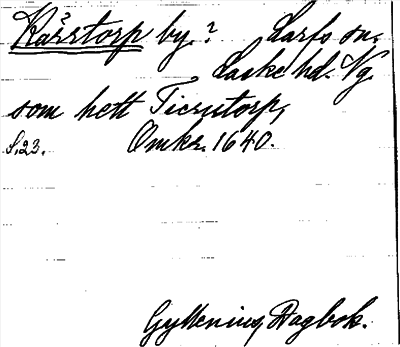 Kåxtorp by? Larfs sn.
Laske hd. Vg.
som hett Tierutorp,
S. 23. Omkr. 1640.
Gyllenius, Dagbok.